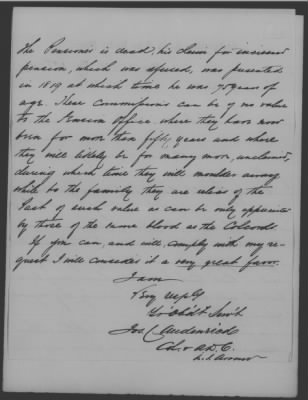 The Pensioner is dead, his claim for increased
pension, which was refused, was presented
in 1819 at which time he was 75 years of
age. These commissions can be of no value
to the Pension Office where they have now
been for more than fifty years and where
they will likely be for many more, unclaimed,
during which time they will moulder away
while to the family they are relics of the
Past of such value as can be only appreciated
by those of the same blood as the
If you can, and will, comply with my re-
quest I will consider it a very great favor.
I am
Very resp'ly
Yr Obdt Servt
Jos. C. Audenried
Col. & A.D.C.
U.S. Army